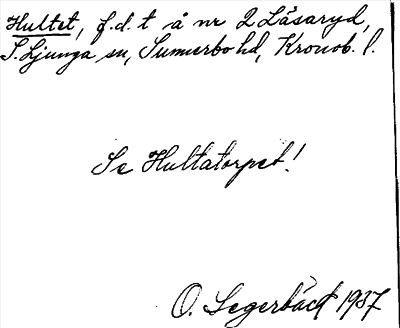 Hultet, f.d. t å nr 2 Läsaryd,
S. Ljunga sn, Sunnerbo hd, Kronob. l.
Se Hultatorpet!
O. Segerbäck 1937